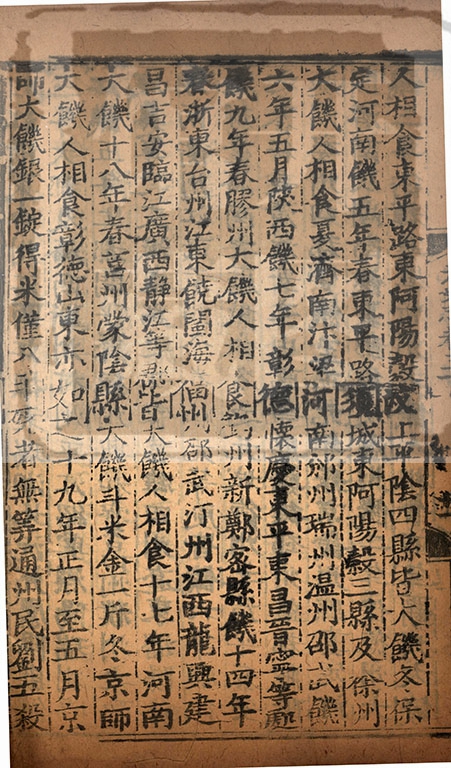 人相食東平路東阿陽穀及上平陰四縣皆大饑冬保
定河南饑五年春東平路須城東阿陽穀三縣及徐州
大饑人相食夏濟南汴梁河南邠州瑞州温州邵武饑
六年五月陜西饑七年彰德懷慶東平東昌晉寧等郡
饑九年春膠州大饑人相食鈞州新鄭密縣饑十四年
春浙東台州江東饒閩海福州邵武汀州江西龍興建
昌吉安臨江廣西静江等郡皆大饑人相食十七年河南
大饑十八年春莒州蒙陰縣大饑斗米金一斤冬京師
大饑人相食彰德山東亦如之十九年正月至五月京
師大饑銀一錠得米僅八斗死者無等通州民劉五殺